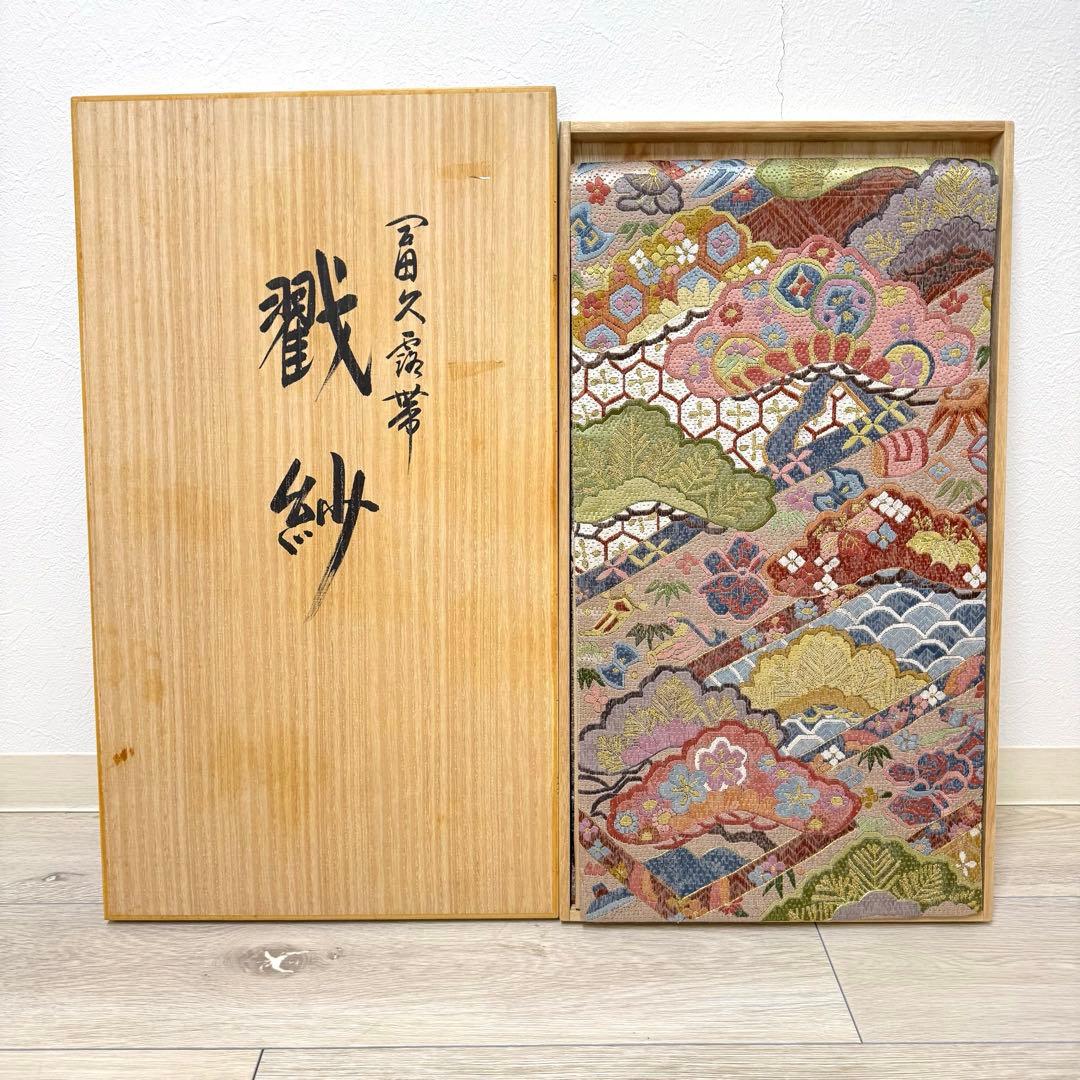 冨田久露帯
戳紗